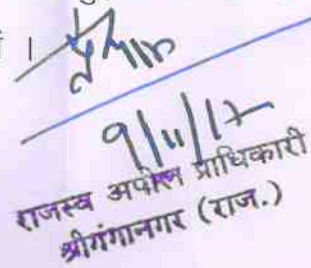 9/11/17
राजस्व अपील प्राधिकारी
श्रीगंगानगर (राज.)